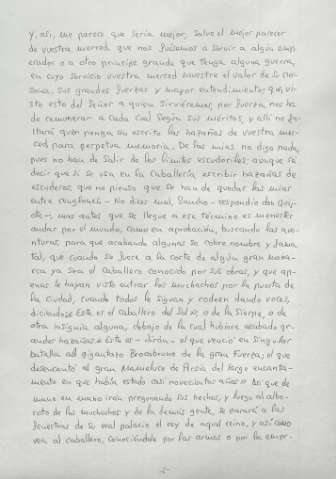 y, así, me parece que sería mejor, salvo el mejor parecer
de vuestra merced, que nos fuésemos a servir a algún empe-
rador o a otro príncipe grande que tenga alguna guerra,
en cuyo servicio vuestra merced muestre el valor de su per-
sona, sus grandes fuerzas y mayor entendimiento; que, vi-
sto esto del señor a quien sirviéremos, por fuerza nos ha
de remunerar a cada cual según sus méritos, y allí no fa-
ltará quien ponga en escrito las hazañas de vuestra mer-
ced para perpetua memoria. De las mías no digo nada,
pues no han de salir de los límites escuderiles; aunque sé
decir que si se usa en la caballería escribir hazañas de
escuderos, que no pienso que se han de quedar las mías
entre renglones. - No dices mal, Sancho - respondió don Quij-
ote -, mas antes que se llegue a ese término es menester
andar por el mundo, como en aprobación, buscando las ave-
nturas, para que acabando algunas se cobre nombre y fama
tal, que cuando se fuere a la corte de algún gran mona-
rca ya sea el caballero conocido por sus obras, y que ap-
enas le hayan visto entrar los muchachos por la puerta de
la ciudad, cuando todos le sigan y rodeen dando voces,
diciendo: "Este es el caballero del Sol", o de la Sierpe, o de
otra insignia alguna, debajo de la cual hubiere acabado gr-
andes hazañas. "Este es - dirán - el que venció en singular
batalla al gigantazo Brocabruno de la gran Fuerza; el que
desencantó al gran Mameluco de Persia del largo encanta-
mento en que había estado casi novecientos años". Así que de
mano en mano irán pregonando sus hechos, y luego al albo-
roto de los muchachos y de la demás gente, se parará a las
fenestras de su real palacio el rey de aquel reino, y así como
vea al caballero, conociéndole por las armas o por la empr-
-2-